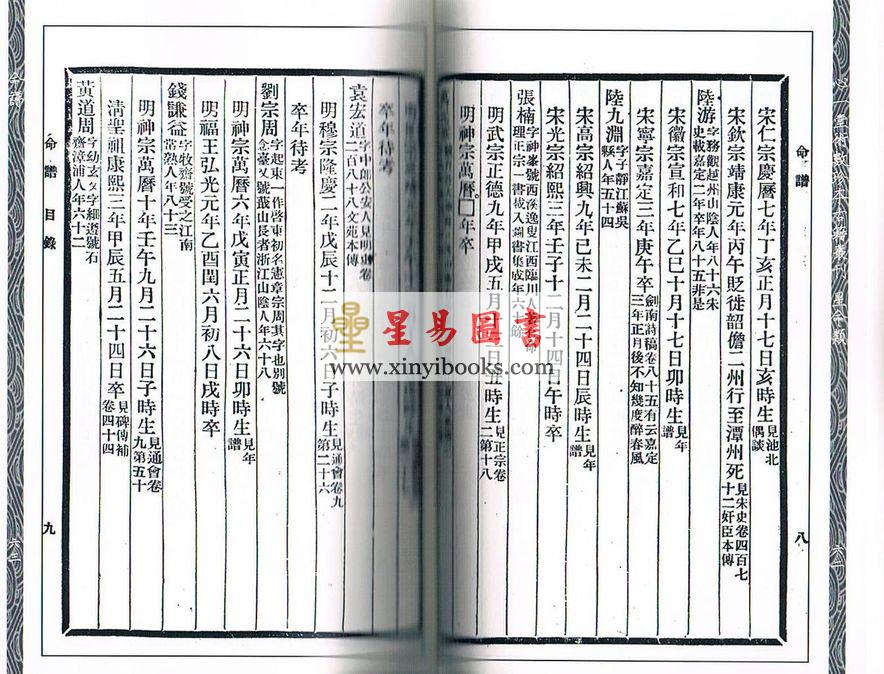 命譜
八
宋仁宗慶曆七年丁亥正月十七日亥時生 見池北偶談
宋欽宗靖康元年丙午貶徙韶儋二州行至潭州死 見宋史卷四百七十二奸臣本傳
陸游 字務觀越州山陰人年八十六宋史載嘉定二年卒年八十五非是
宋徽宗宣和七年乙巳十月十七日卯時生 見年譜
宋寧宗嘉定三年庚午卒 劍南詩稿卷八十五有云嘉定三年正月後不知幾度醉春風
陸九淵 字子靜江蘇吳縣人年五十四
宋高宗紹興九年己未二月二十四日辰時生 見年譜
宋光宗紹熙三年壬子十二月十四日午時卒
張楠 字神峯號西溪逸叟江西臨川人 理正宗一書載入圖書集成年六十餘
明武宗正德九年甲戌五月 日丑時生 見正宗卷二第十八
明神宗萬曆囗年卒
卒年待考
袁宏道 字中郎公安人見明史卷二百八十八文苑本傳
明穆宗隆慶二年戊辰十二月初六日子時生 見通會卷九第二十六
卒年待考
劉宗周 字起東一作啓東初名憲章宗周其字也別號念臺又號蕺山長者浙江山陰人年六十八
明神宗萬曆六年戊寅正月二十六日卯時生 見年譜
明福王弘光元年乙酉閏六月初八日戌時卒
錢謙益 字牧齋號受之江南常熟人年八十三
明神宗萬曆十年壬午九月二十六日子時生 見通會卷九第五十
清聖祖康熙三年甲辰五月二十四日卒 見碑傳補卷四十四
黃道周 字幼玄又字細遵號石齋漳浦人年六十二
命譜 目錄
九
星易圖書
www.xinyibooks.com